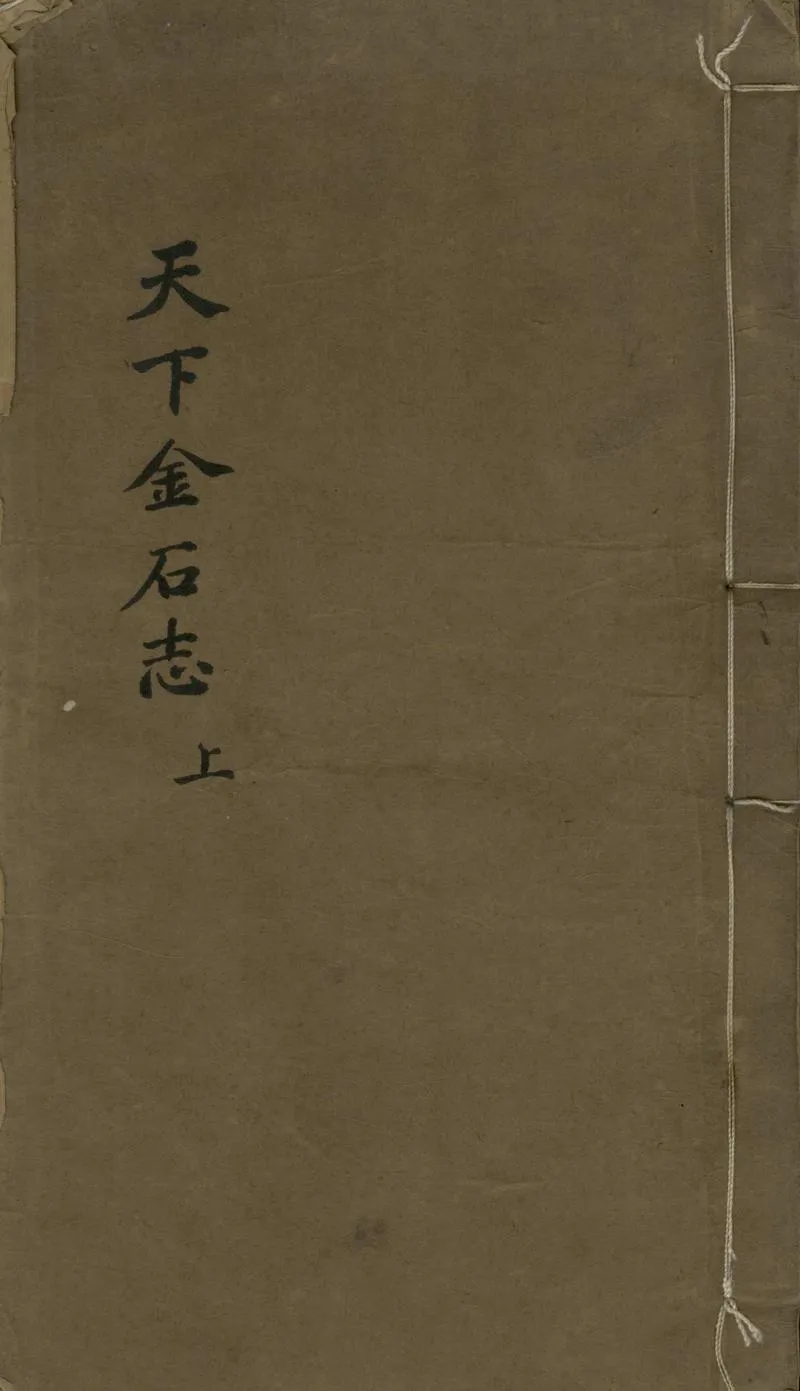 天下金石志
上